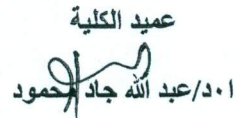 عميد الكلية
ا.د/عبد الله جاد محمود